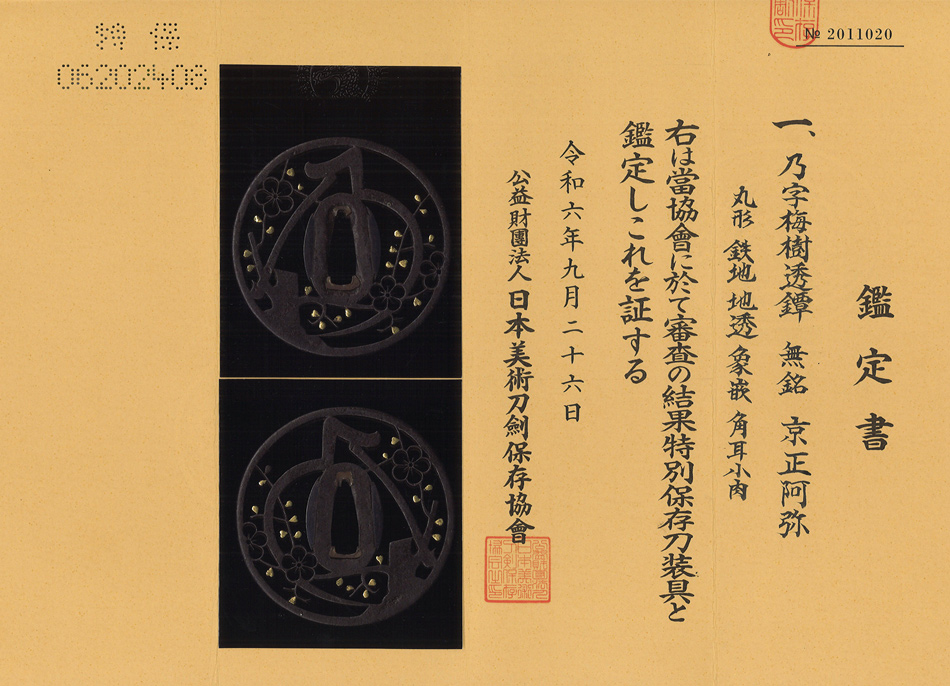 № 2011020
鑑定書
一、乃字梅樹透鐔 無銘 京正阿弥
丸形 鉄地 地透 象嵌 角耳小肉
右は當協會に於て審査の結果特別保存刀装具と
鑑定しこれを証する
令和六年九月二十六日
公益財團法人 日本美術刀劍保存協會
特 保
06202408